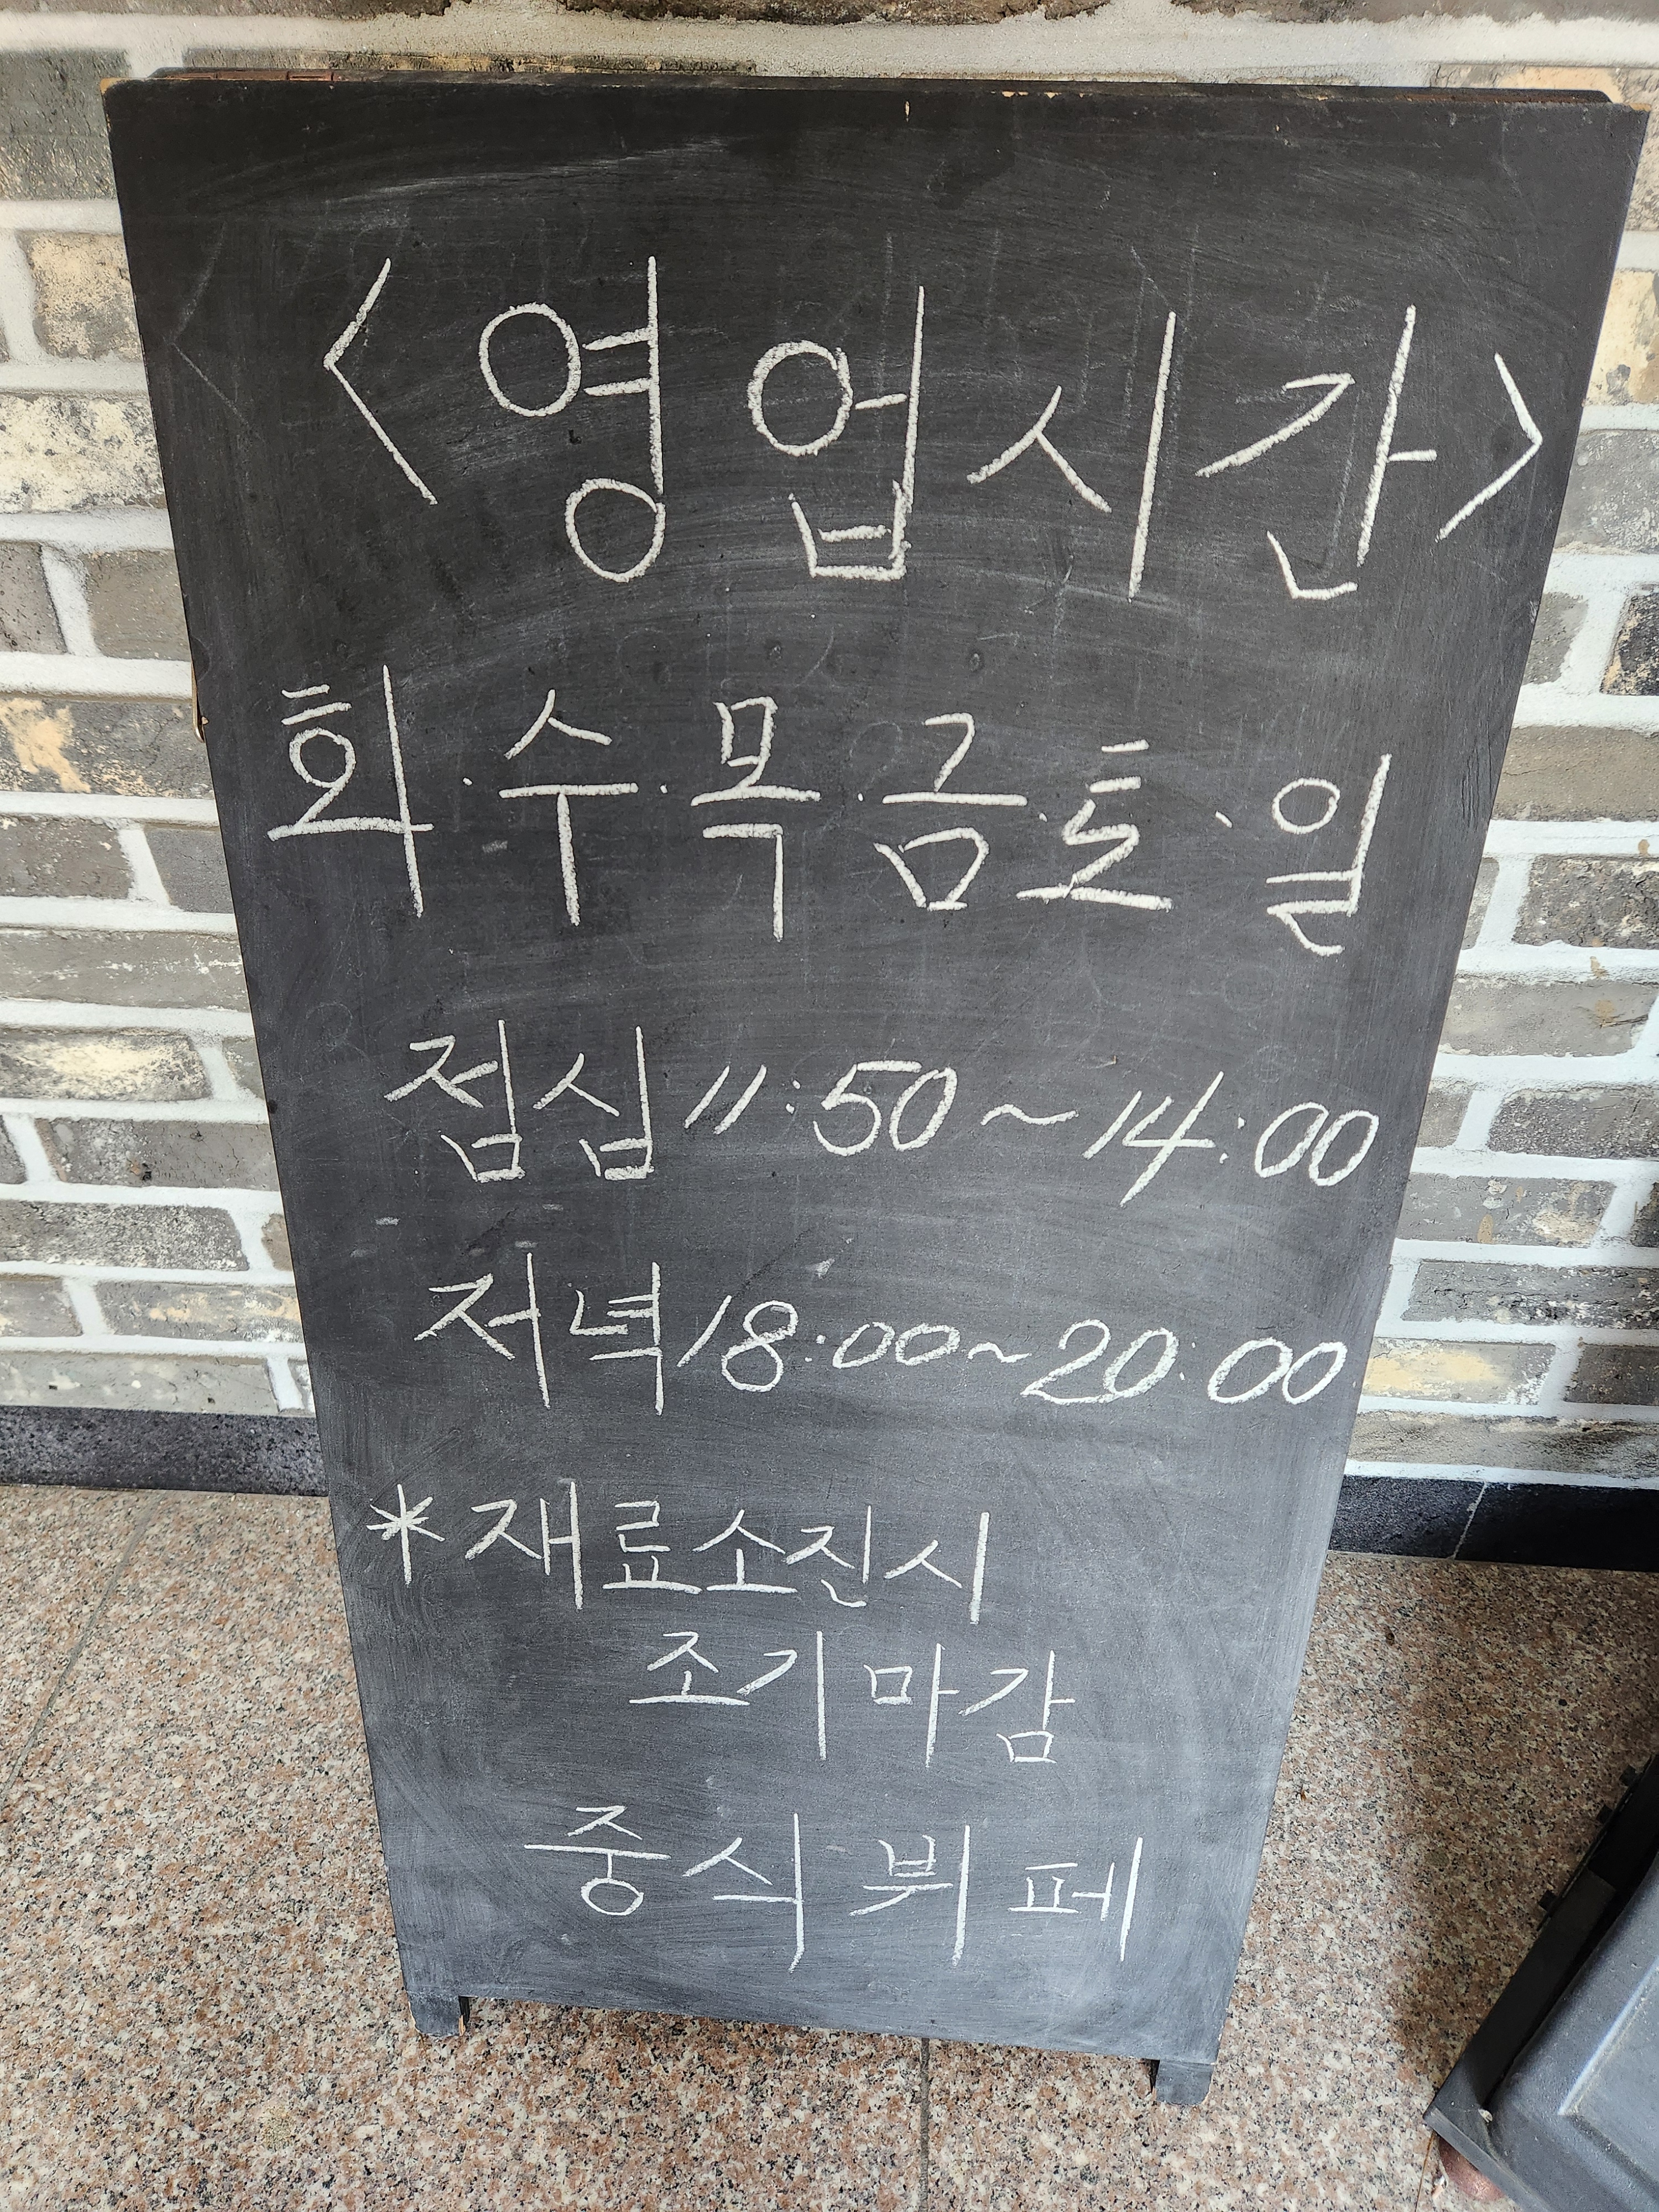 <영업시간>
화·수·목·금·토·일
점심 11:50~14:00
저녁 18:00~20:00
*재료소진시
조기마감
중식뷔페